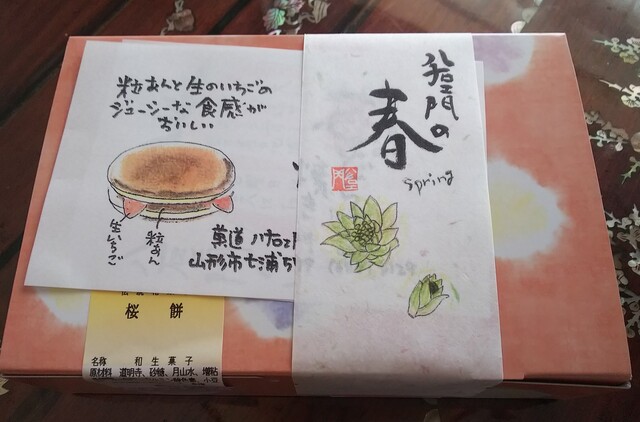 粒あんと生のいちごの
ジューシーな食感が
おいしい
生いちご
粒あん
菓道 八右エ門
山形市七浦
八右エ門の
春
spring
桜餅
名称 和生菓子
原材料 道明寺、砂糖、月山水、増粘